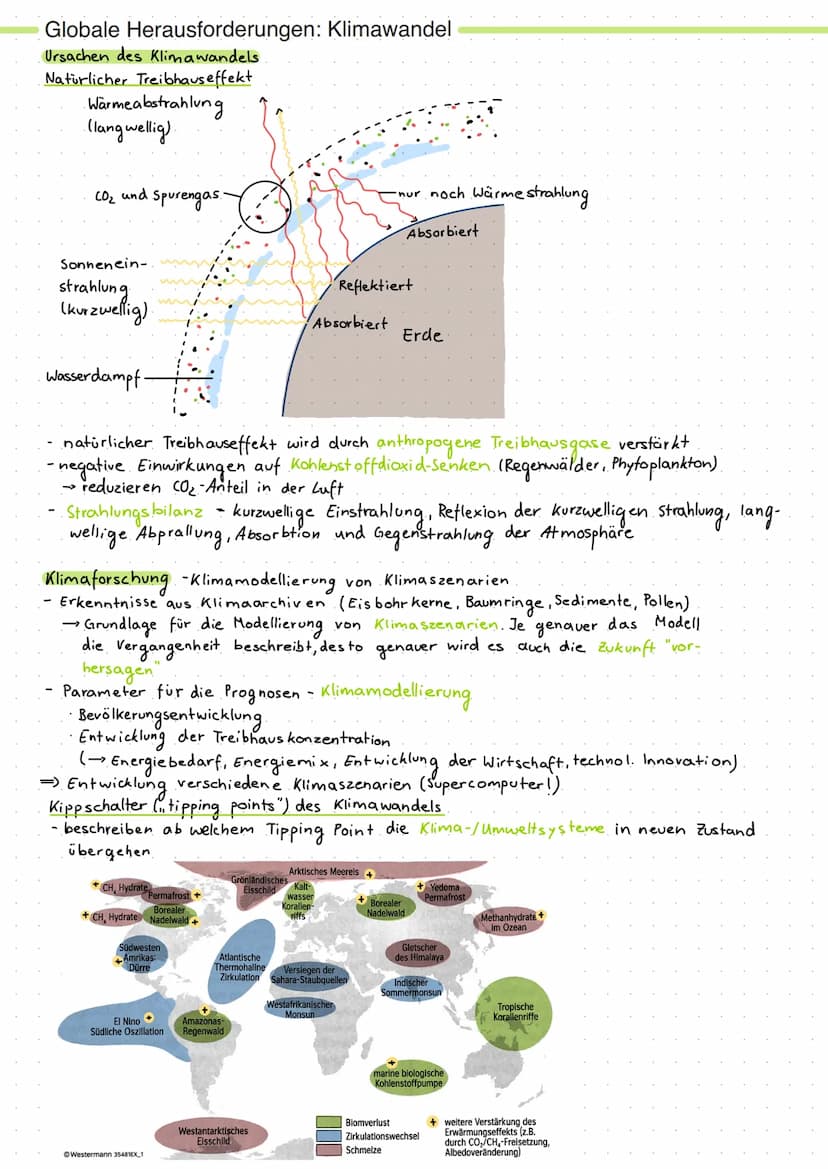 Globale Herausforderungen: Klimawandel
Ursachen des Klimawandels
Natürlicher Treibhauseffekt
Wärmeabstrahlung
(langwellig)
CO₂ und Spurengas
nur noch Wärmestrahlung
Absorbiert
Sonnenein-
strahlung
(kurzwellig)
Reflektiert
Absorbiert
Erde
Wasserdampf
- natürlicher Treibhauseffekt wird durch anthropogene Treibhausgase verstärkt
- negative Einwirkungen auf Kohlenstoffdioxid-Senken (Regenwälder, Phytoplankton)
→ reduzieren CO₂-Anteil in der Luft
- Strahlungsbilanz - kurzwellige Einstrahlung, Reflexion der kurzwelligen Strahlung, lang-
wellige Abprallung, Absorbtion und Gegenstrahlung der Atmosphäre
Klimaforschung - Klimamodellierung von Klimaszenarien
- Erkenntnisse aus Klimaarchiven (Eisbohrkerne, Baumringe, Sedimente, Pollen)
→ Grundlage für die Modellierung von Klimaszenarien. Je genauer das Modell
die Vergangenheit beschreibt, desto genauer wird es auch die Zukunft "vor-
hersagen"
- Parameter für die Prognosen - Klimamodellierung
· Bevölkerungsentwicklung
· Entwicklung der Treibhauskonzentration
(→ Energiebedarf, Energiemix, Entwicklung der Wirtschaft, technol. Innovation)
⇒ Entwicklung verschiedene Klimaszenarien (Supercomputer!)
Kippschalter („tipping points") des Klimawandels
- beschreiben ab welchem Tipping Point die Klima-/Umweltsysteme in neuen Zustand
übergehen
Arktisches Meereis +
Grönländisches
Eisschild
+ CH₄ Hydrate
Permafrost +
+ CH₄ Hydrate
Borealer
Nadelwald +
Kalt-
wasser
Korallen-
riffs
+ Borealer
Nadelwald
+ Yedoma
Permafrost
Methanhydrate +
im Ozean
Südwesten
+ Amrikas:
Dürre
Atlantische
Thermohaline
Zirkulation
Versiegen der
Sahara-Staubquellen
Gletscher
des Himalaya
Indischer
Sommermonsun
Westafrikanischer
Monsun
Tropische
Korallenriffe
El Nino +
Südliche Oszillation
+
Amazonas-
Regenwald
+
marine biologische
Kohlenstoffpumpe
Westantarktisches
Eisschild
Biomverlust
Zirkulationswechsel
Schmelze
+ weitere Verstärkung des
Erwärmungseffekts (z.B.
durch CO₂/CH₄-Freisetzung,
Albedoveränderung)
© Westermann 35481EX_1